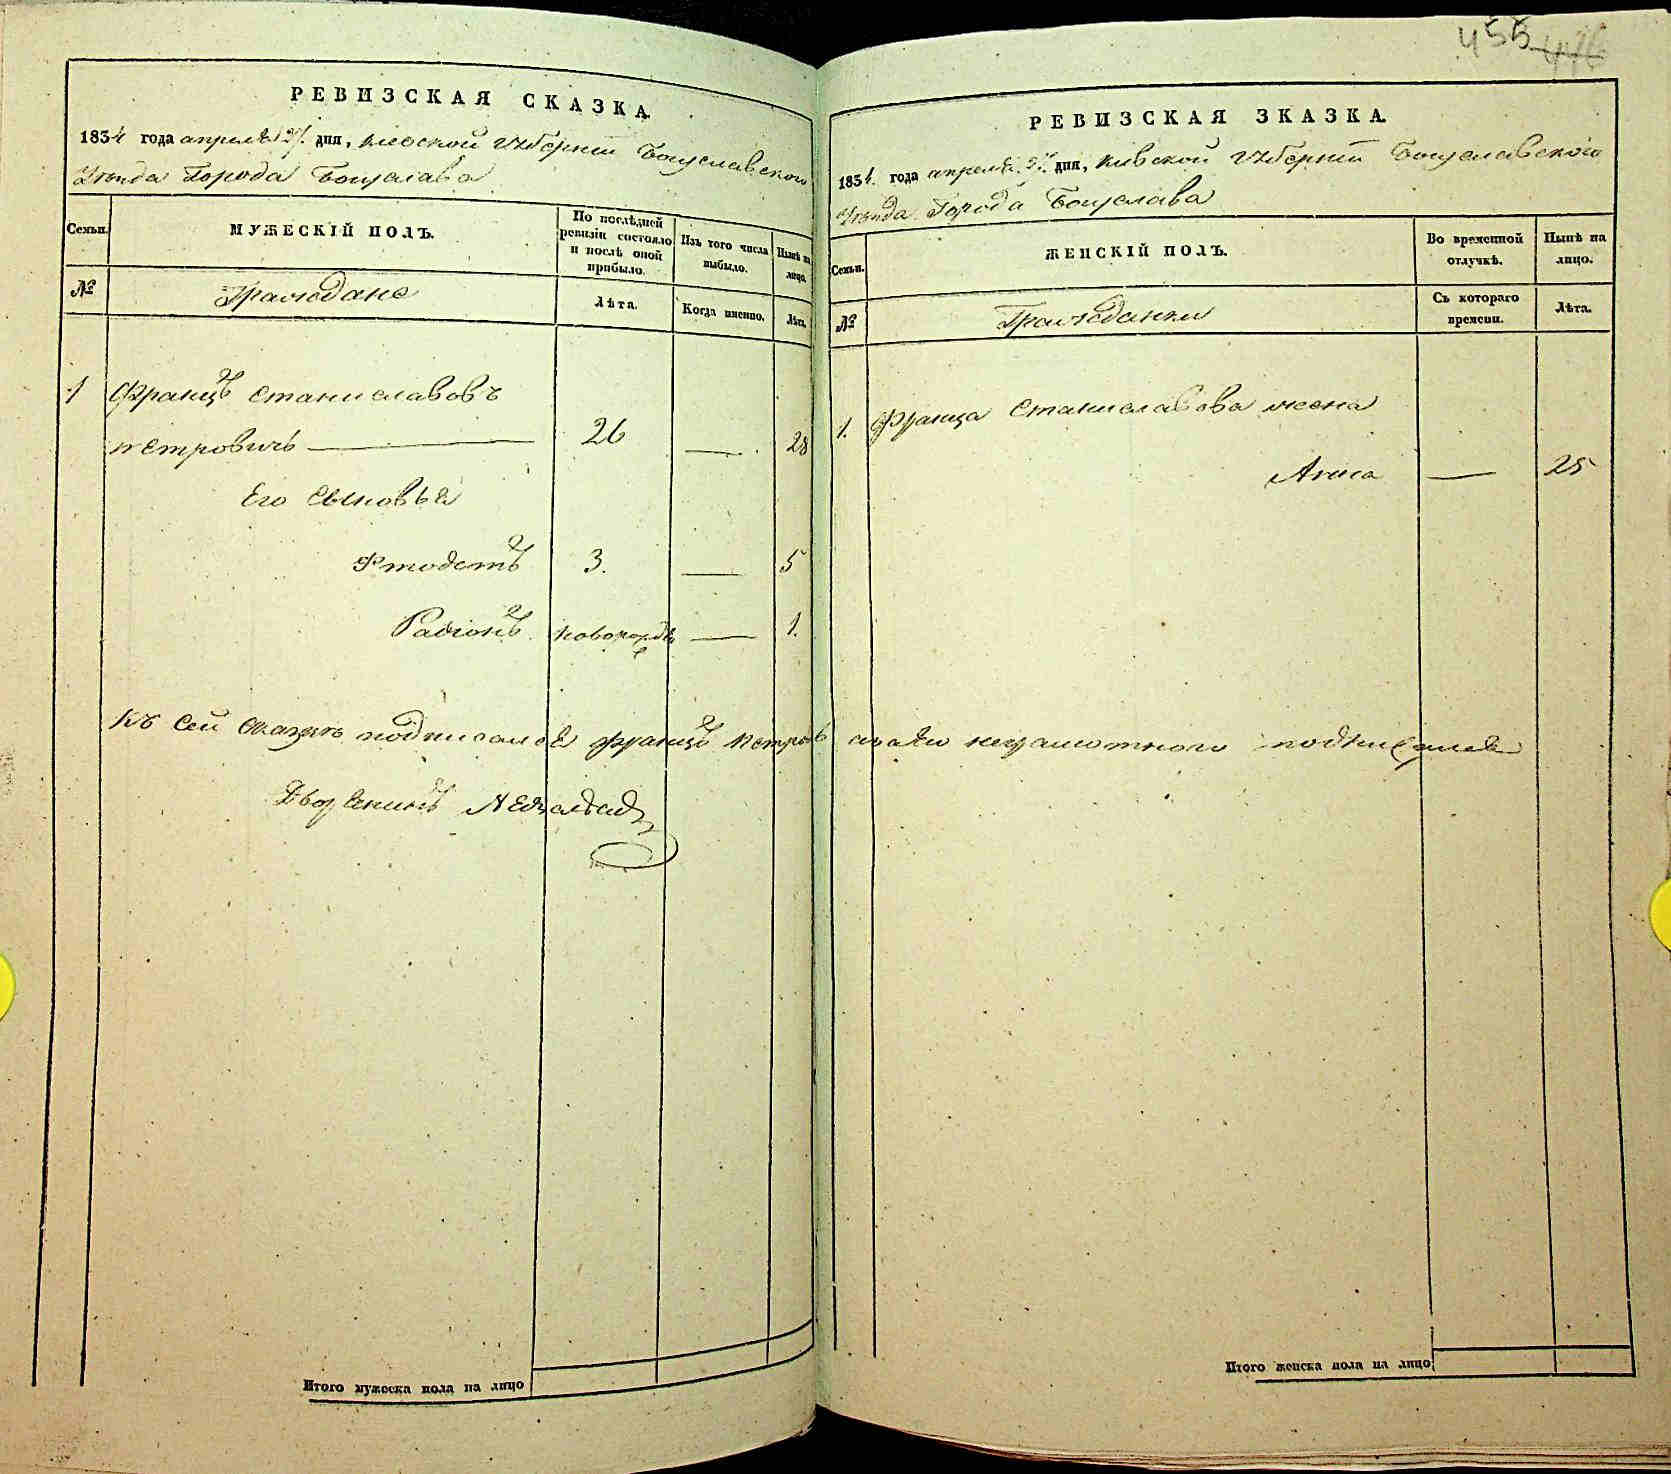 455 446
РЕВИЗСКАЯ СКАЗКА.
1834 года апреля 27. дня, Киевской Губернии Богуславского
Уезда Города Богуслава
Семьи.
МУЖЕСКІЙ ПОЛЪ.
По послѣдней ревизіи состояло и послѣ оной прибыло.
Изъ того числа выбыло.
Нынѣ на лицо.
№
Граждане
Лѣта.
Когда именно.
Лѣта.
1 Францъ Станиславовъ
Петровичъ 26 — 28
Его сыновья
3. — 5
Радіонъ новорожде — 1.
Къ сей сказкѣ подписался Францъ Петров
Дворянинъ
Итого мужеска пола на лицо
РЕВИЗСКАЯ ЗКАЗКА.
1834. года апреля дня, Кивской Губерніи Богуславского
Уезда Города Богуслава
Семьи.
ЖЕНСКІЙ ПОЛЪ.
Во временной отлучкѣ.
Нынѣ на лицо.
№
Гражданки
Съ котораго времени.
Лѣта.
1. Франца Станиславова жена
— 25
неграмотного подписался
Итого женска пола на лицо